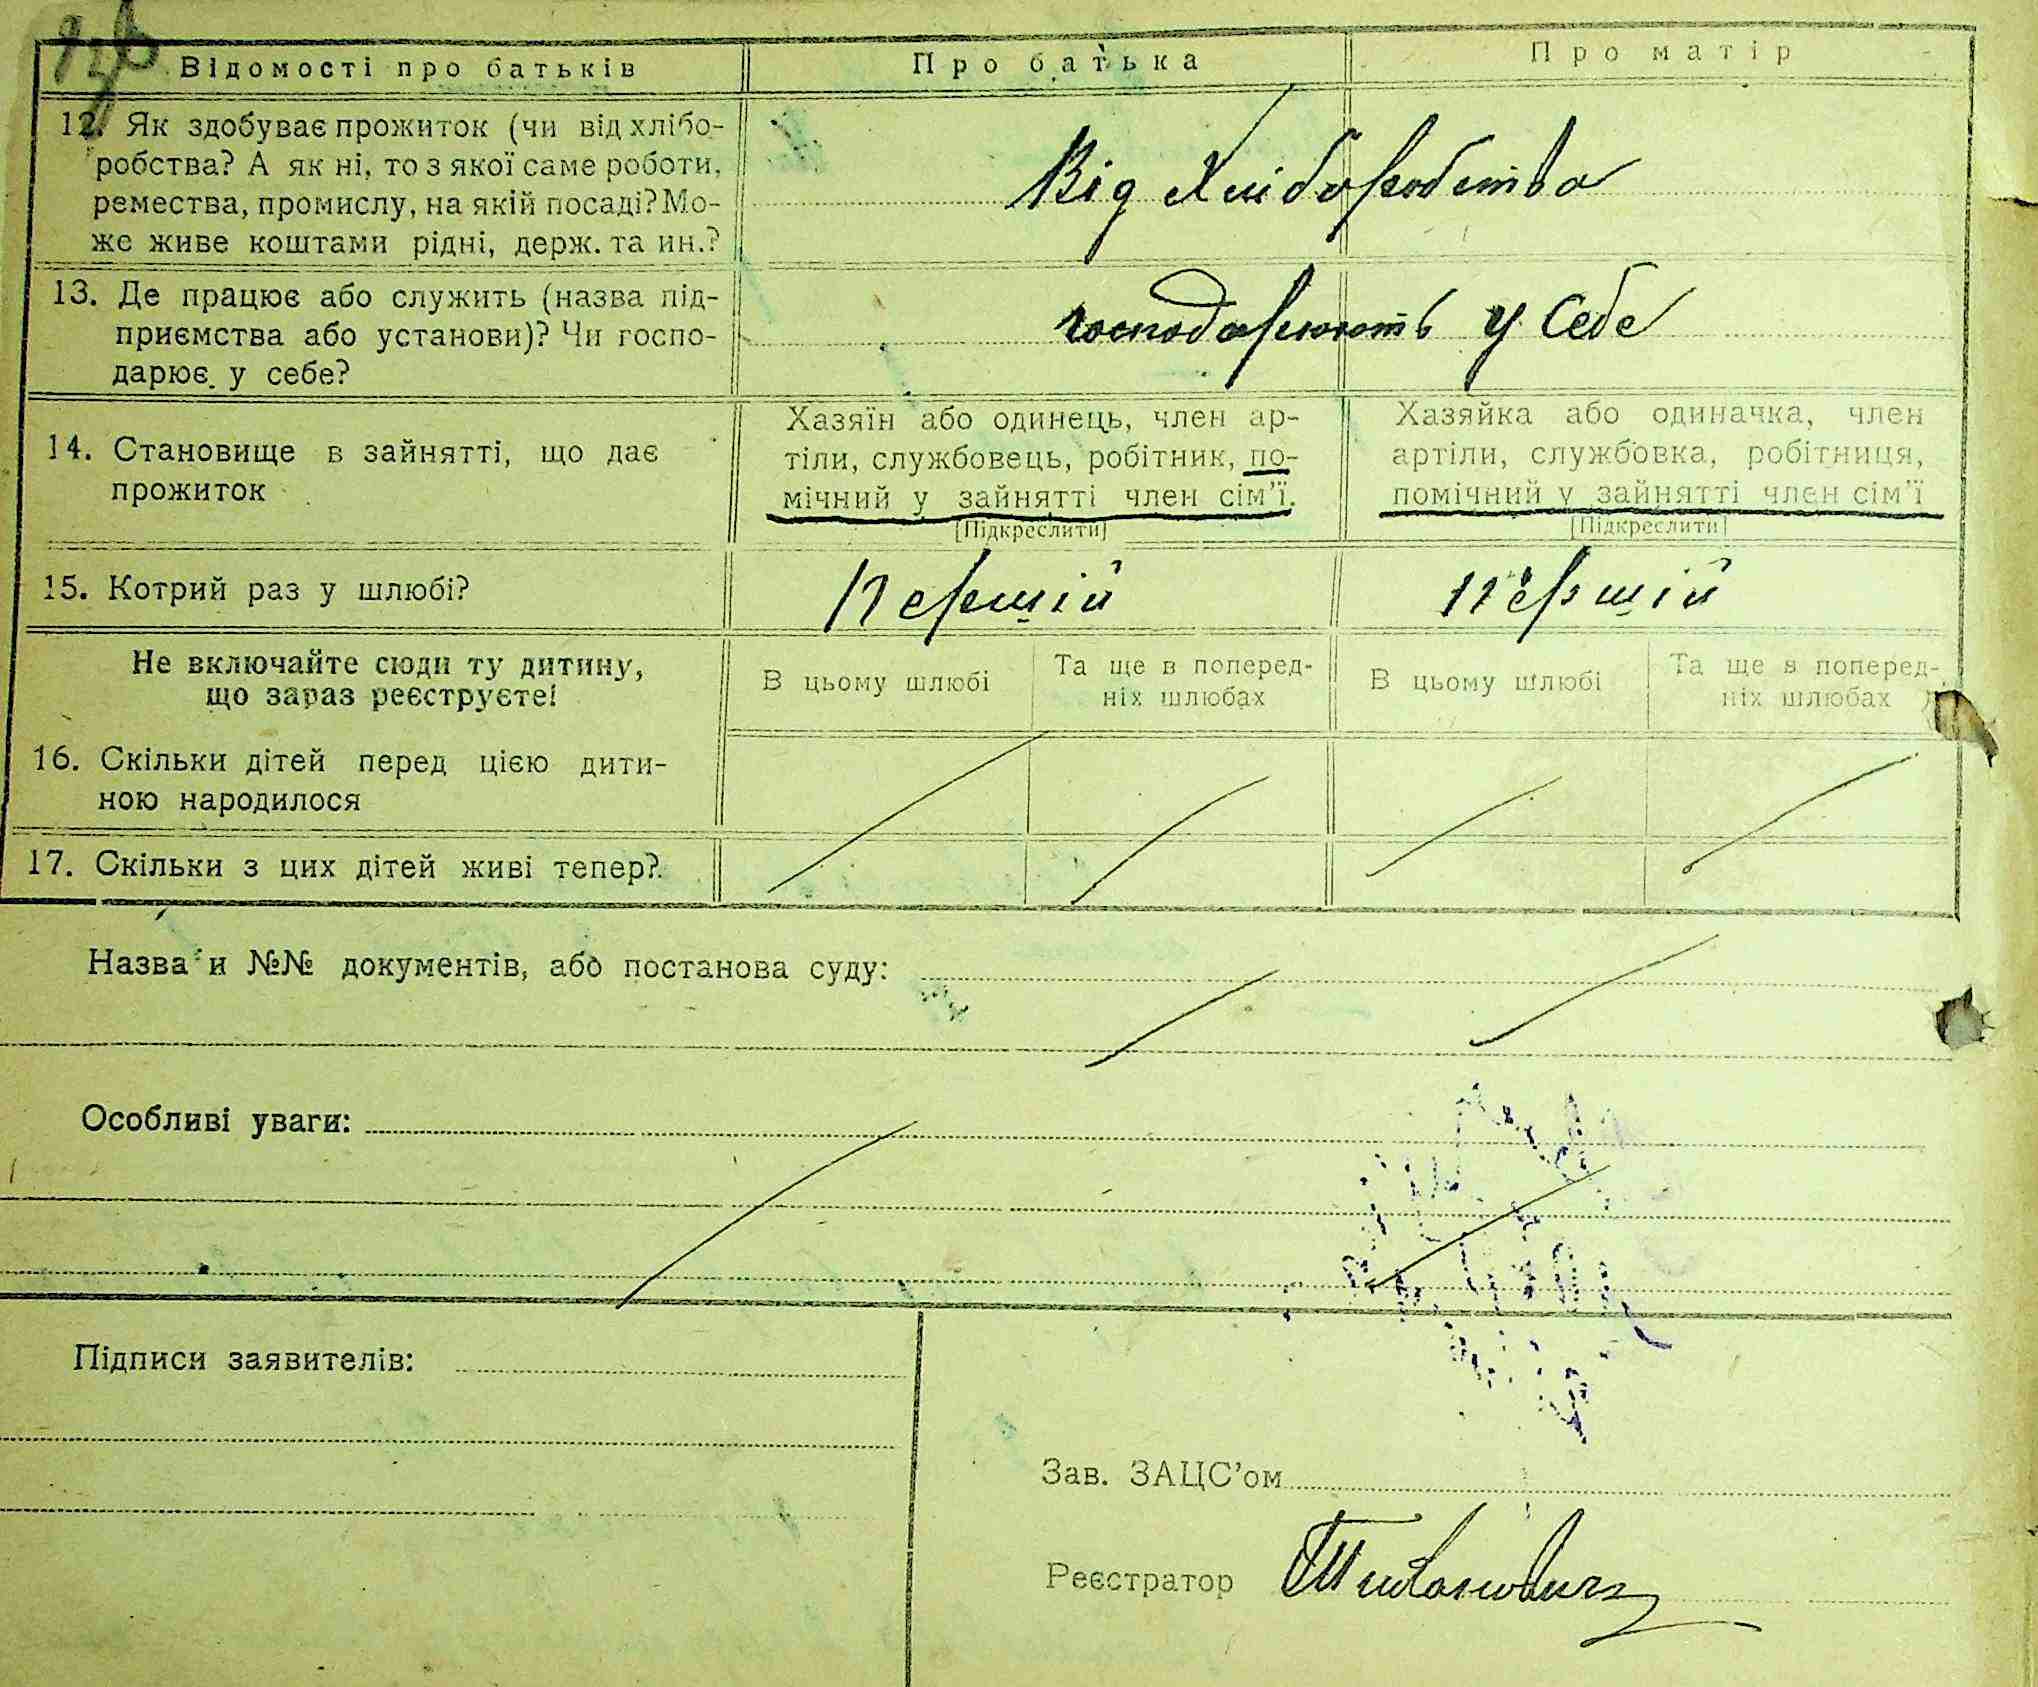 Відомості про батьків Про батька Про матір
12. Як здобуває прожиток (чи від хлібо-
робства? А як ні, то з якої саме роботи,
ремества, промислу, на якій посаді? Мо-
же живе коштами рідні, держ. та ин.?
Від Хліборобства
13. Де працює або служить (назва під-
приємства або установи)? Чи госпо-
дарює у себе?
господарюють у Себе
14. Становище в зайнятті, що дає
прожиток
Хазяїн або одинець, член ар-
тіли, службовець, робітник, по-
мічний у зайнятті член сім'ї.
[Підкреслити]
Хазяйка або одиначка, член
артіли, службовка, робітниця,
помічний у зайнятті член сім'ї
[Підкреслити]
15. Котрий раз у шлюбі? Першій першій
Не включайте сюди ту дитину,
що зараз реєструєте!
В цьому шлюбі
Та ще в поперед-
ніх шлюбах
В цьому шлюбі
Та ще в поперед-
ніх шлюбах
16. Скільки дітей перед цією дити-
ною народилося
17. Скільки з цих дітей живі тепер?
Назва и №№ документів, або постанова суду:
Особливі уваги:
Підписи заявителів:
Зав. ЗАЦС'ом
Реєстратор